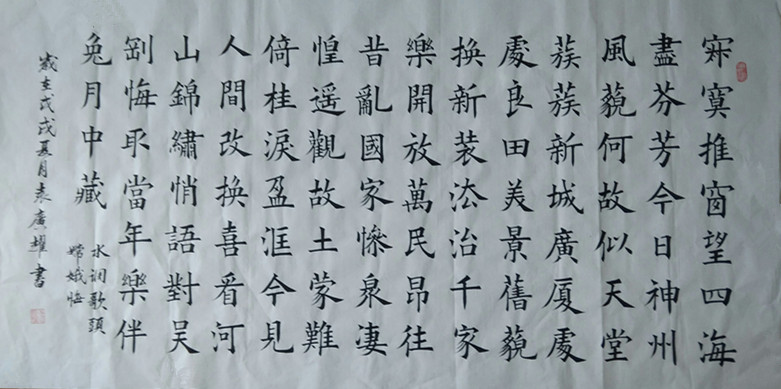 寂寞推窗望四海
盡芬芳今日神州
風藐何故似天堂
蔟蔟新城廣厦處
處良田美景舊藐
换新装法治千家
樂開放萬民昂往
昔亂國家慘泉凄
惶遥觀故土蒙難
倚桂淚盈洭今見
人間改换喜看河
山錦繡悄語對吴
剛悔取當年樂伴
兔月中藏
水调歌頭
嫦娥悔
歲在戊戌夏月袁廣耀書